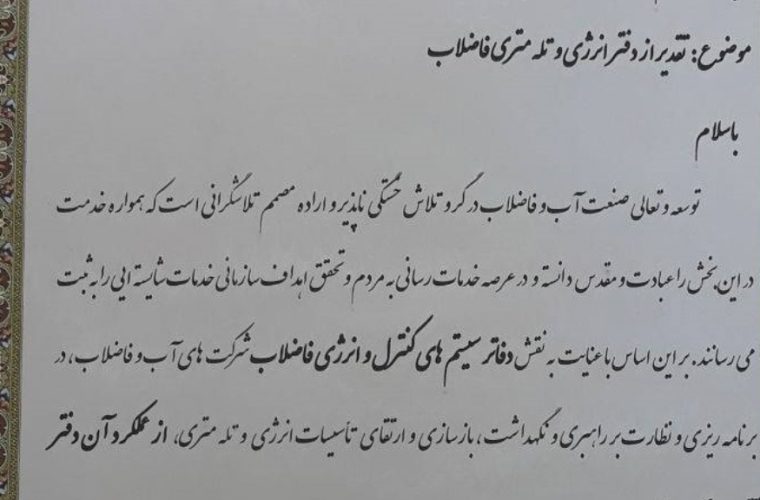 موضوع: تقدیر از دفتر انرژی و تله متری فاضلاب
باسلام
توسعه و تعالی صنعت آب و فاضلاب در گرو تلاش خستگی ناپذیر و اراده مصمم تلاشگرانی است که همواره خدمت
در این بخش را عبادت و مقدس دانسته و در عرصه خدمات رسانی به مردم و تحقق اهداف سازمانی خدمات شایسته ایی را به ثبت
می رسانند. بر این اساس با عنایت به نقش دفاتر سیستم های کنترل و انرژی فاضلاب شرکت های آب و فاضلاب، در
برنامه ریزی و نظارت بر راهبری و نگهداشت، بازسازی و ارتقای تأسیسات انرژی و تله متری، از عملکرد آن دفتر